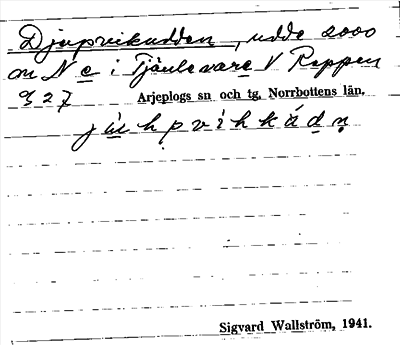 Djupvikudden, udde 2000
m N e i Tjäulevare V Reppen
927 Arjeplogs sn och tg, Norrbottens län.
jùhpvìhkádn
Sigvard Wallström, 1941.